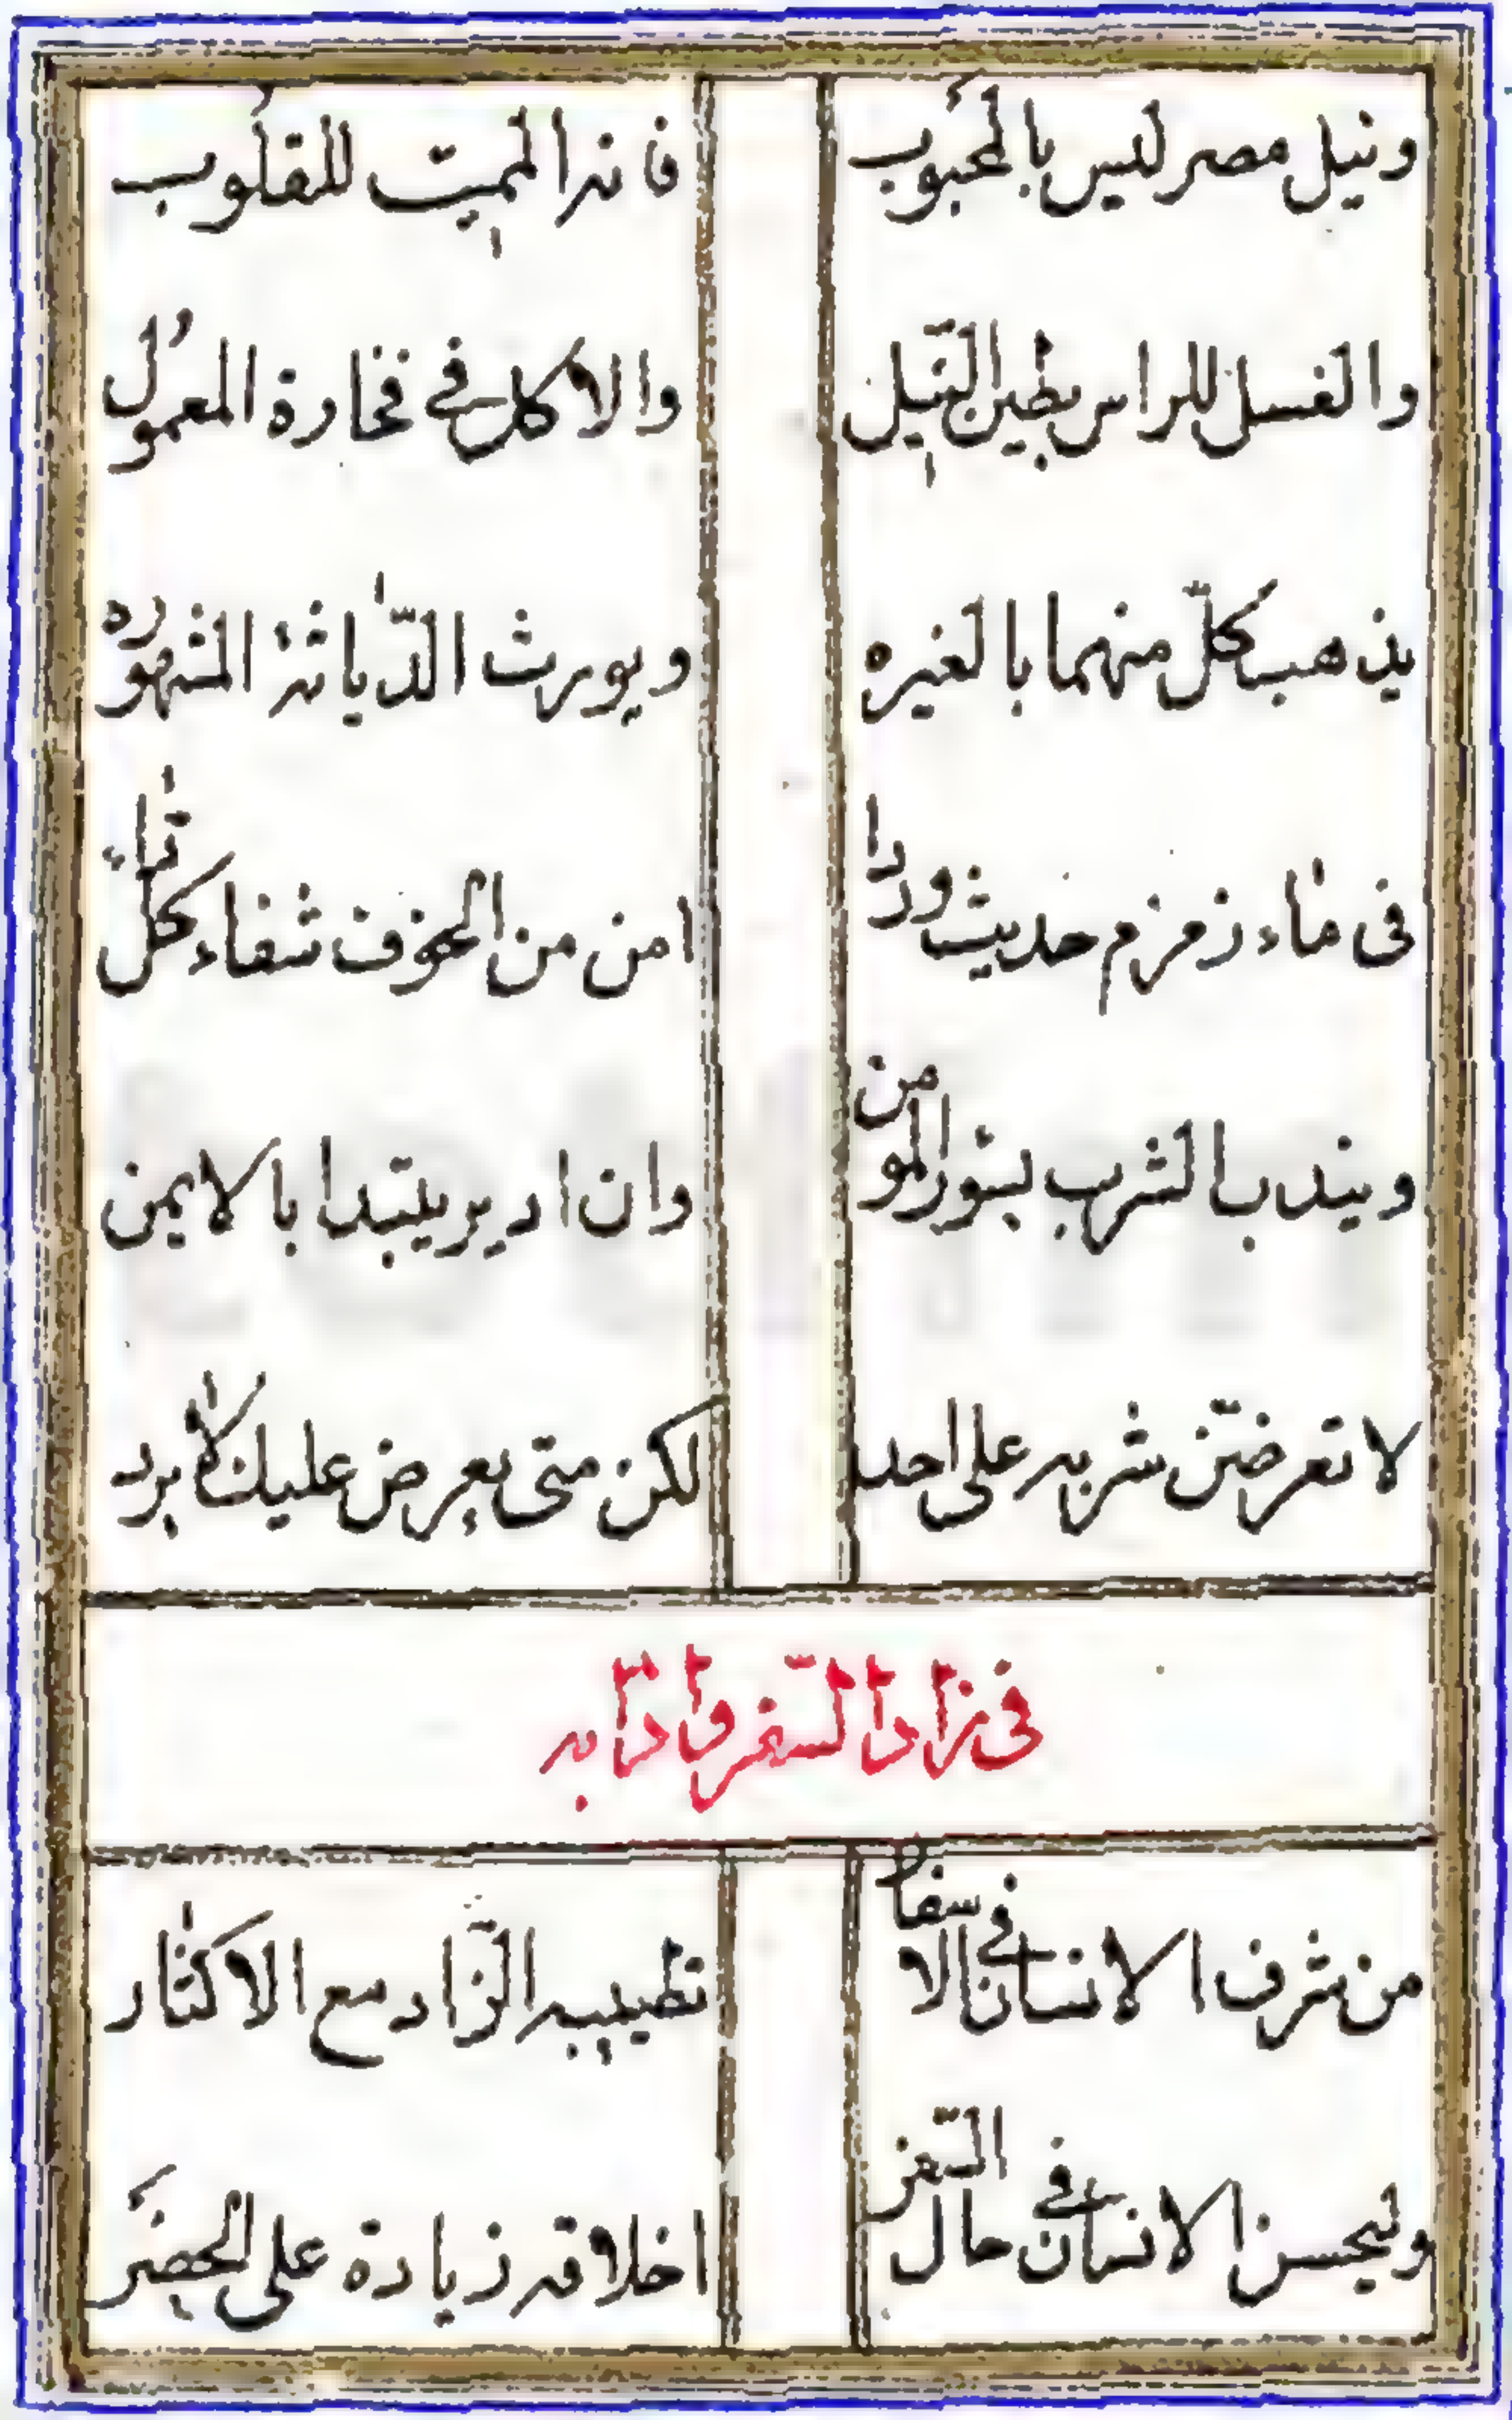 ونيل مصر ليس بالمحبوب فانه المميت للقلوب
والغسل للراس بطين النّيل والاكل في فخارة المعمول
يذهب كلّ منهما بالغيره ويورث الدّياثة المشهوره
فى ماء زمزم حديث وردا امن من الخوف شفاء كلّ داء
ويندب الشرب بسور المومن وان ادير يبتدا بالايمن
لا تعرضنّ شربه على احد لكن متى يعرض عليك لا يرد
فى زاد السّفر وادابه
من شرف الانسان في الاسفار تطييبه الزّاد مع الاكثار
وليحسن الانسان في حال السّفر اخلاقه زيادة على الحضر